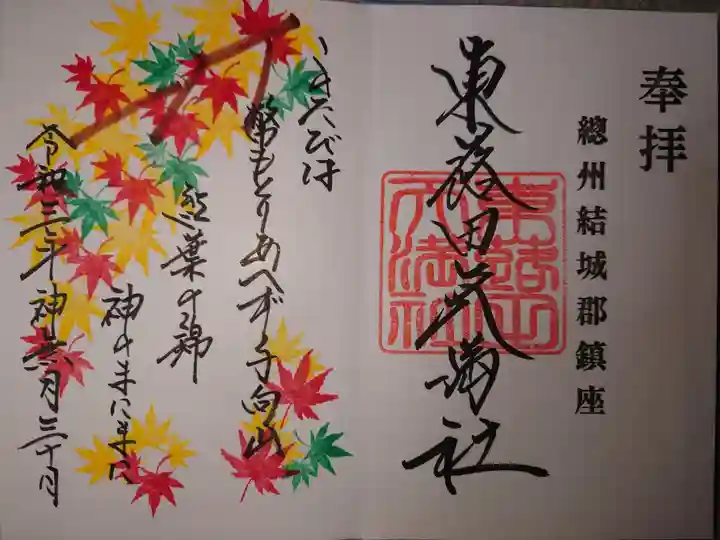 奉拝
總州結城郡鎮座
東蕗田天満社
東蕗田
天満社
このたびは
幣もとりあへず手向山
紅葉の錦
神のまにまに
令和三年神無月三十日